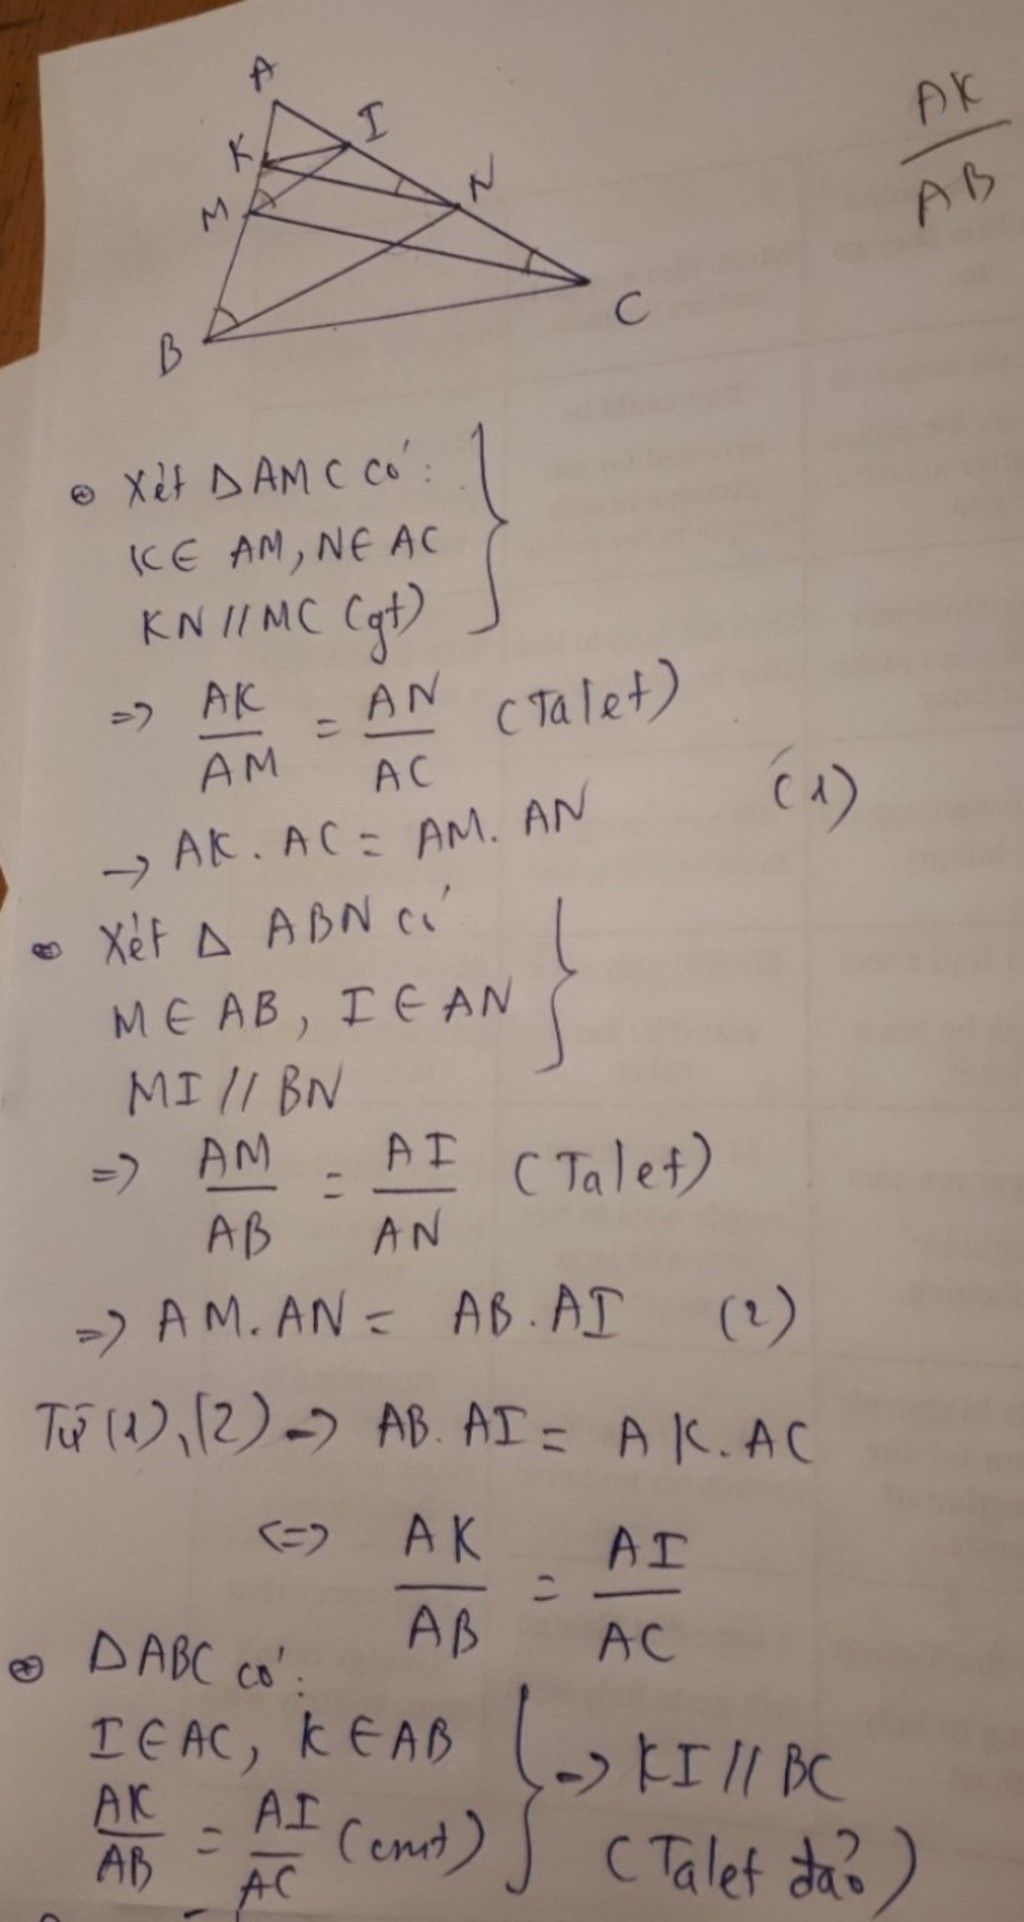 A
K
I
M
N
B
C
AK
AB
Xét ΔAMC có:
K∈ AM, N∈ AC
KN//MC (gt)
=> AK/AM = AN/AC (Talet)
-> AK. AC = AM. AN (1)
Xét Δ ABN có
M∈ AB, I∈ AN
MI // BN
=> AM/AB = AI/AN (Talet)
=> AM. AN = AB. AI (2)
Từ (1), (2) -> AB. AI = AK. AC
<=> AK/AB = AI/AC
ΔABC có:
I∈AC, K∈AB
AK/AB = AI/AC (cmt)
-> KI // BC
(Talet đảo)